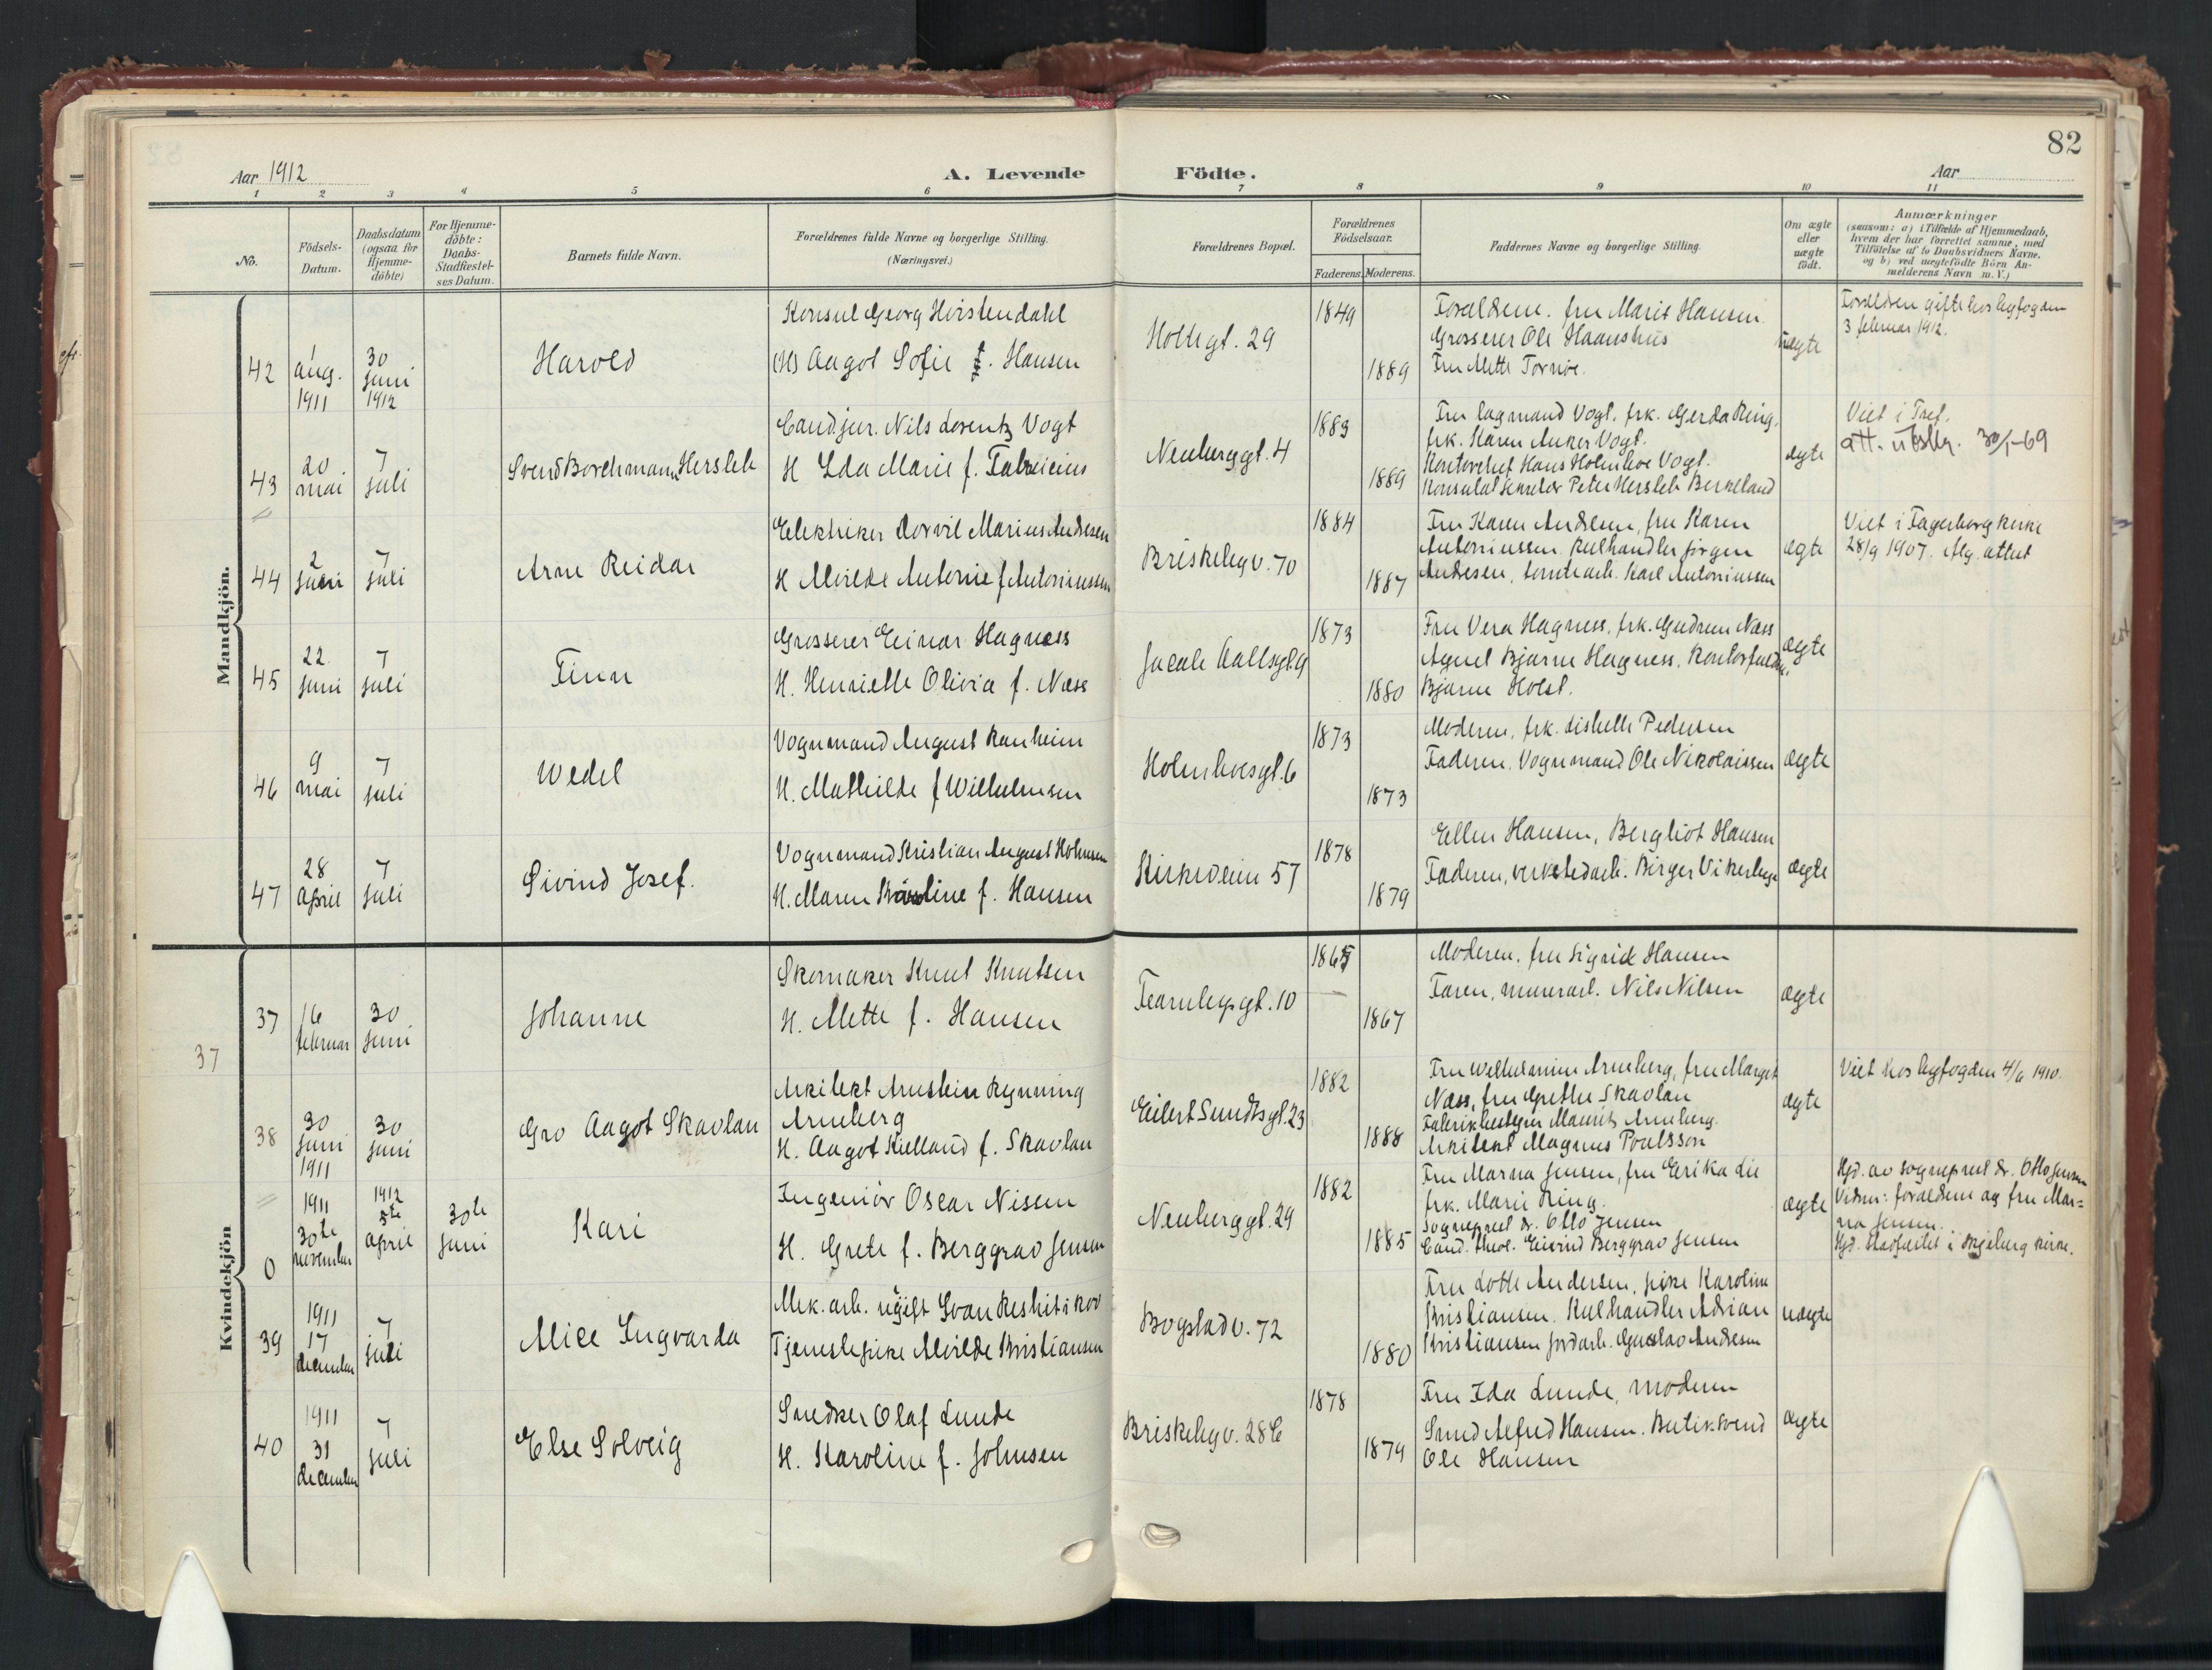 82
Aar 1912
A. Levende
Födte.
Aar
1 2 3 4 5 6 7 8 9 10 11
No.
Födsels-
Datum.
Daabsdatum
(ogsaa for
Hjemme-
döbte)
For Hjemme-
döbte:
Daabs-
Stadfæstel-
ses Datum.
Barnets fulde Navn.
Forældrenes fulde Navne og borgerlige Stilling.
(Næringsvei.)
Forældrenes Bopæl.
Forældrenes
Födselsaar.
Faderens.
Moderens.
Faddernes Navne og borgerlige Stilling.
Om ægte
eller
uægte
födt.
Anmærkninger
(saasom: a) i Tilfælde af Hjemmedaab,
hvem der har forrettet samme, med
Tilföielse af to Daabsvidners Navne.
og b) ved uægtefödte Börn An-
melderens Navn m. V.)
Mandkjön.
42
1
aug.
1911
30
juni
1912
Harold
Konsul Georg Hvistendahl
(H) Aagot Sofie f. Hansen
Holtegt. 29
1849
1889
Forældrene. fru Marit Hansen
Grosserer Ole Haanshus
Fru Mette Tornøe.
uægte
Forældren gifte hos byfogden
3 februar 1912.
43
20
mai
7
juli
Svend Borchmann Hersleb
Cand.jur. Nils Lorentz Vogt
H Ida Marie f. Fabricius
Neuberggt. 4
1883
1889
Fru lagmand Vogt. frk. Gerda Ring.
frk. Karen Anker Vogt.
Kontorchef Hans Holmboe Vogt.
Konsulatsekretær Peter Hersleb Berkeland
ægte
Viet i Tref.
att. utstky. 30/1-69
44
2
juni
7
juli
Arne Reidar
Elektriker Dorvil Marius Andresen
H Alvilde Antonie f Antoniussen
Briskebyv. 70
1884
1887
Fru Karen Andresen, fru Karen
Antoniussen. Kulhandler Jørgen
Andresen, tomtearb. Karl Antoniussen
ægte
Viet i Fagerborg kirke
28/9 1907. Alg. attest
45
22
juni
7
juli
Finn
Grosserer Einar Hagness
H. Henriette Olivia f. Næss
Jacob Aallsgt. 9
1873
1880
Fru Vera Hagness, frk. Gudrun Næss
Agent Bjarne Hagness. Kontorfuldm.
Bjarne Holst.
ægte
46
9
mai
7
juli
Wedel
Vognmand August Ranheim
H. Mathilde f Wilhelmsen
Holmboesgt. 6
1873
1873
Moderen, frk. Lisbeth Pedersen
Faderen. Vognmand Ole Nikolaissen
ægte
47
28
april
7
juli
Eivind Josef.
Vognmand Kristian August Holmsen
H. Maren Karoline f. Hansen
Kirkeveien 57
1878
1879
Ellen Hansen, Bergliot Hansen
Faderen, verkstedarb. Birger Vikerhaug
ægte
Kvindekjön
37
37
16
februar
30
juni
Johanne
Skomaker Knut Knutsen
H. Mette f. Hansen
Fearnleysgt. 10
1865
1867
Moderen. fru Sigrid Hansen
Faren, murerarb. Nils Nilsen
ægte
38
30
juni
1911
30
juni
Gro Aagot Skavlan
Arkitekt Arnstein Rynning
Arneberg
H. Aagot Kielland f. Skavlan
Eilert Sundtsgt. 23
1882
1888
Fru Wilhelmine Arneberg, fru Margit
Næss, fru Grethe Skavlan
Fabrikbestyrer Mauritz Arneberg.
Arkitekt Magnus Poulsson
ægte
Viet hos byfogden 4/6 1910.
0
1911
30te
november
1912
5te
april
30te
juni
Kari
Ingeniør Oscar Nissen
H. Grete f. Berggrav Jensen
Neuberggt. 29
1882
1885
Fru Marna Jensen, fru Erika Lie
frk. Marie Ring.
Sogneprest dr. Otto Jensen
Cand. theol. Eivind Berggrav Jensen
ægte
Hjd. av sogneprest dr. Otto Jensen
Vidner: forældrene og fru Mar=
na Jensen.
Hjd. stadfæstet i Skjeberg kirke.
39
1911
17
december
7
juli
Alice Ingvarda
Mek. arb. ugift Ivan Reshitikov
Tjenestepike Alvilde Kristiansen
Bogstadv. 72
1880
Fru Lotte Andersen, pike Karoline
Kristiansen. Kulhandler Adrian
Kristiansen jordarb. Gustav Andresen
uægte
40
1911
31
december
7
juli
Else Solveig
Snedker Olaf Lunde
H. Karoline f. Johnsen
Briskebyv. 28 C
1878
1879
Fru Ida Lunde, moderen
Smed Alfred Hansen. Butiksvend
Ole Hansen
ægte